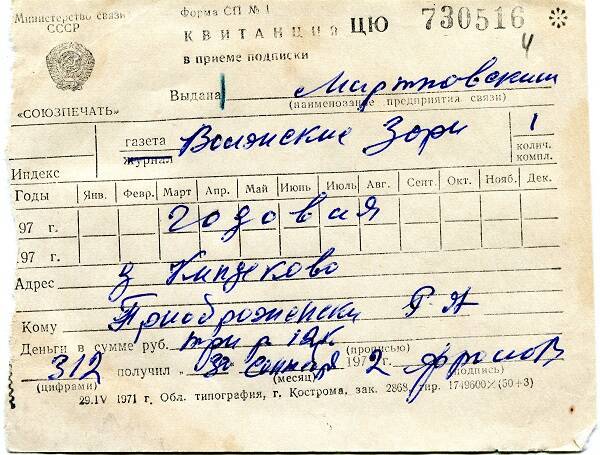 Министерство связи СССР
Форма СП № 1
КВИТАНЦИЯ ЦЮ 730516 *
4
в приеме подписки
«СОЮЗПЕЧАТЬ»
Выдана
(наименование предприятия связи)
Индекс газета журнал Волжские Зори 1 колич. компл.
Годы Янв. Февр. Март Апр. Май Июнь Июль Авг. Сент. Окт. Нояб. Дек.
197 г. годовая
197 г.
Адрес
Кому
Деньги в сумме руб. три р 12к (прописью)
312 получил "30" 197 2
(цифрами) (месяц) (подпись)
29.IV 1971 г. Обл. типография, г. Кострома, зак. 2868, тир. 1749600×(50+3)